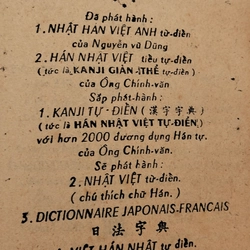 Đã phát hành :
1. NHẬT HÁN VIỆT ANH từ-điển
của Nguyễn vũ Dũng
2. HÁN NHẬT VIỆT tiểu tự-điển
( tức là KANJI GIẢN-THỂ tự-điển )
của Ông Chinh-văn
Sắp phát-hành :
1. KANJI TỰ-ĐIỂN ( 漢字字典 )
( tức là HÁN NHẬT VIỆT TỰ-ĐIỂN )
với hơn 2000 đương dụng Hán tự.
của Ông Chinh-văn.
Sẽ phát hành :
2. NHẬT VIỆT từ-điển.
( chú thích chữ Hán. )
3. DICTIONNAIRE JAPONAIS-FRANCAIS
日法字典
VIỆT HÁN NHẬT từ điển